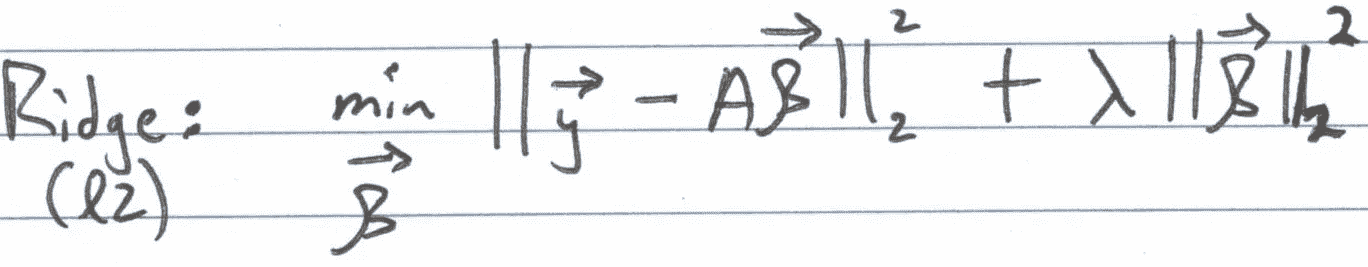 Ridge: min ||y⃗ - Aβ⃗||₂² + λ||β⃗||₂²
(l2) β⃗